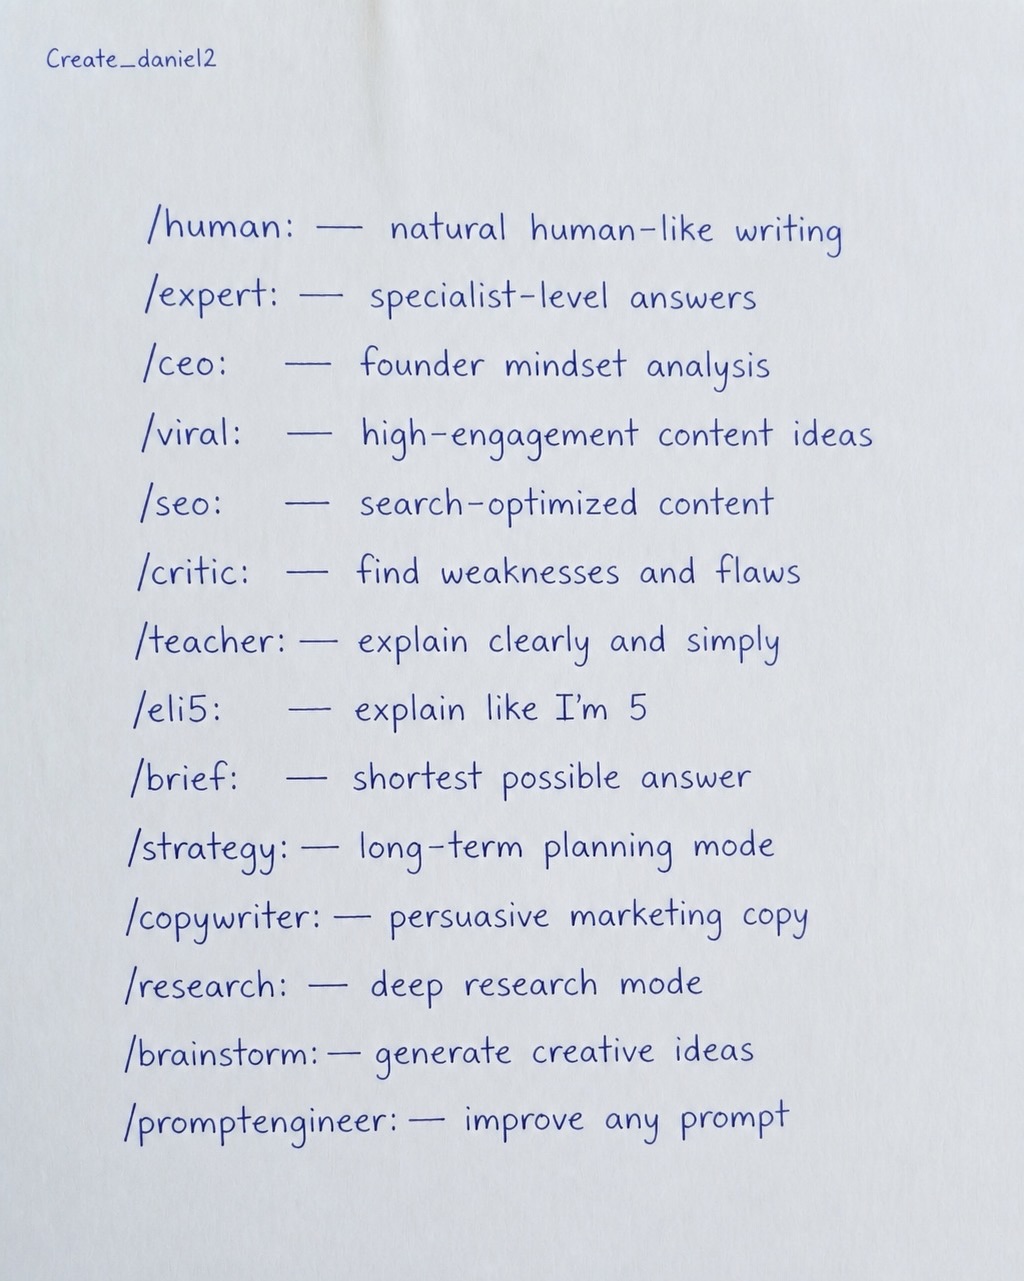 Create_daniel2
/human: — natural human-like writing
/expert: — specialist-level answers
/ceo: — founder mindset analysis
/viral: — high-engagement content ideas
/seo: — search-optimized content
/critic: — find weaknesses and flaws
/teacher: — explain clearly and simply
/eli5: — explain like I'm 5
/brief: — shortest possible answer
/strategy: — long-term planning mode
/copywriter: — persuasive marketing copy
/research: — deep research mode
/brainstorm: — generate creative ideas
/promptengineer: — improve any prompt